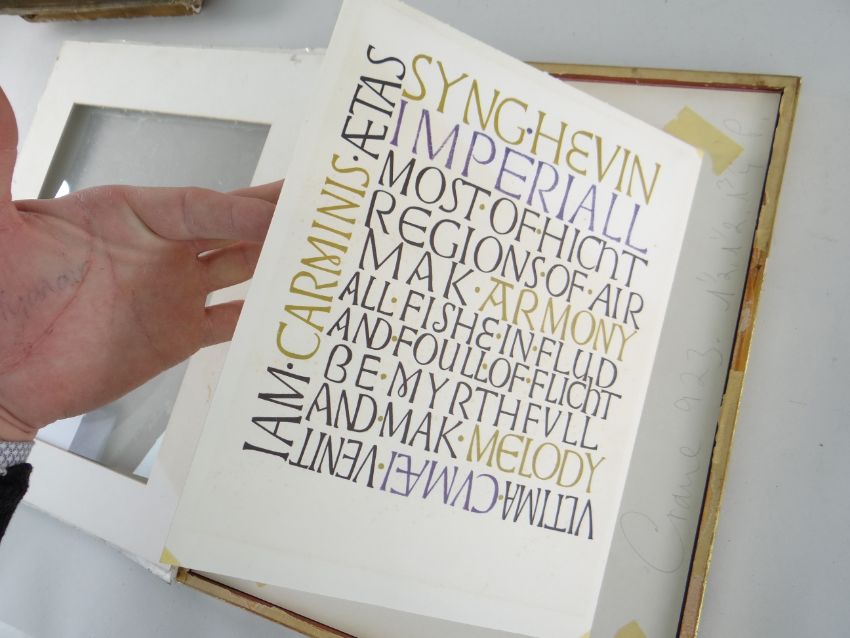 SYNG·HEVIN
IMPERIALL
MOST·OF·HICHT
REGIONS·OF·AIR
MAK·ARMONY
ALL·FISHE·IN·FLUD
AND·FOULL·OF·FLICHT
BE·MYRTHFVLL
AND·MAK·MELODY
VLTIMA·CVMÆI·VENIT
IAM·CARMINIS·ÆTAS
Crane 923.